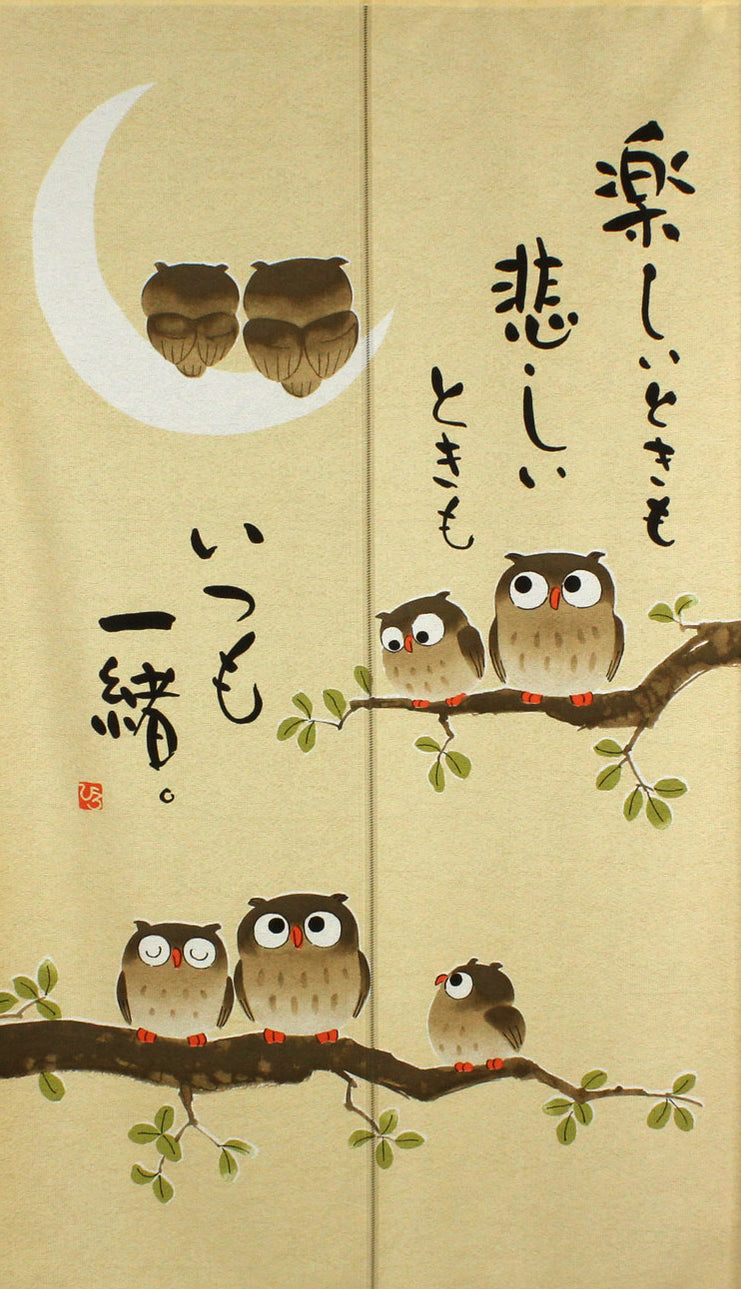 楽しいときも
悲しい
ときも
いつも
一緒。
ひろ